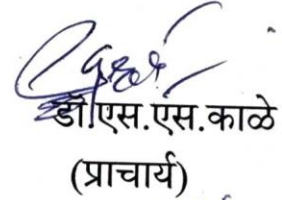 डॉ.एस.एस.काळे
(प्राचार्य)